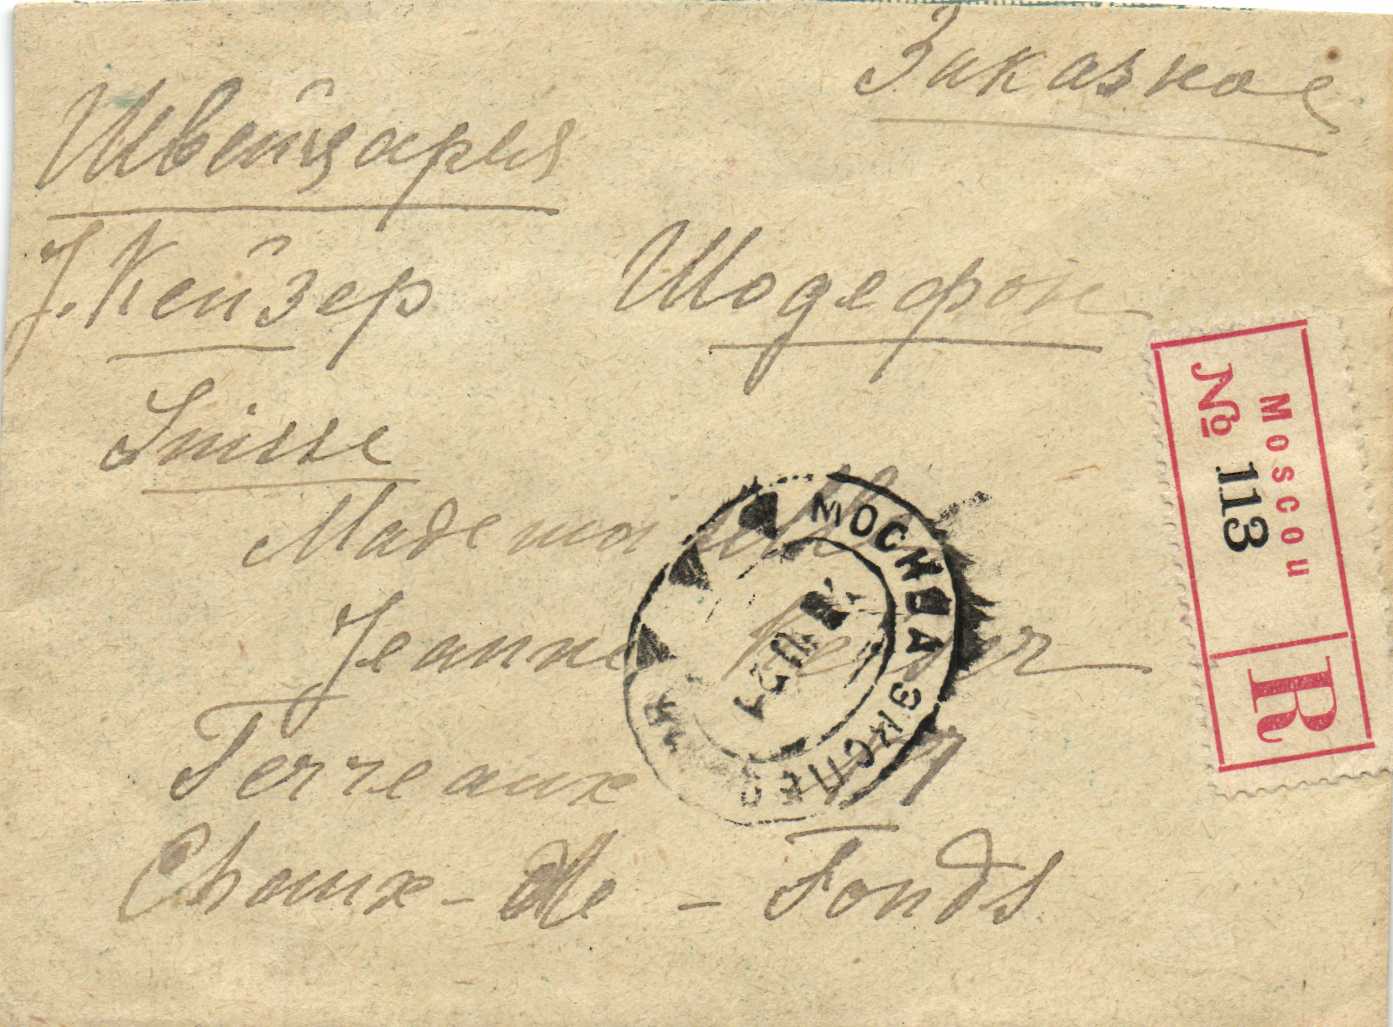 Заказное
Швейцария
J. Кейзер Шодефон
Suisse
Mademoiselle
Jeanne
Terreaux
Chaux-de-Fonds
МОСКВА ЭКСПЕ
Moscou
№ 113
R